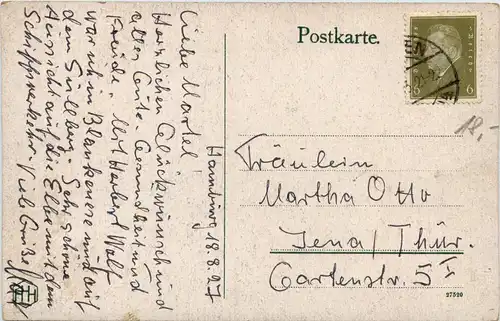 Postkarte.
6 6
12,-
Hamburg 18.8.27
Liebe Martel!
Herzlichen Glückwunsch und
alles Gute. Gesundheit und
Freude. Mit Herbert Wolf
war ich in Blankenese und auf
dem Süllberg. Sehr schöne
Aussicht auf die Elbe mit dem
Schiffsverkehr. Viele Grüße
Fräulein
Martha Otto
Jena/Thür.
Gartenstr. 5 I
27520